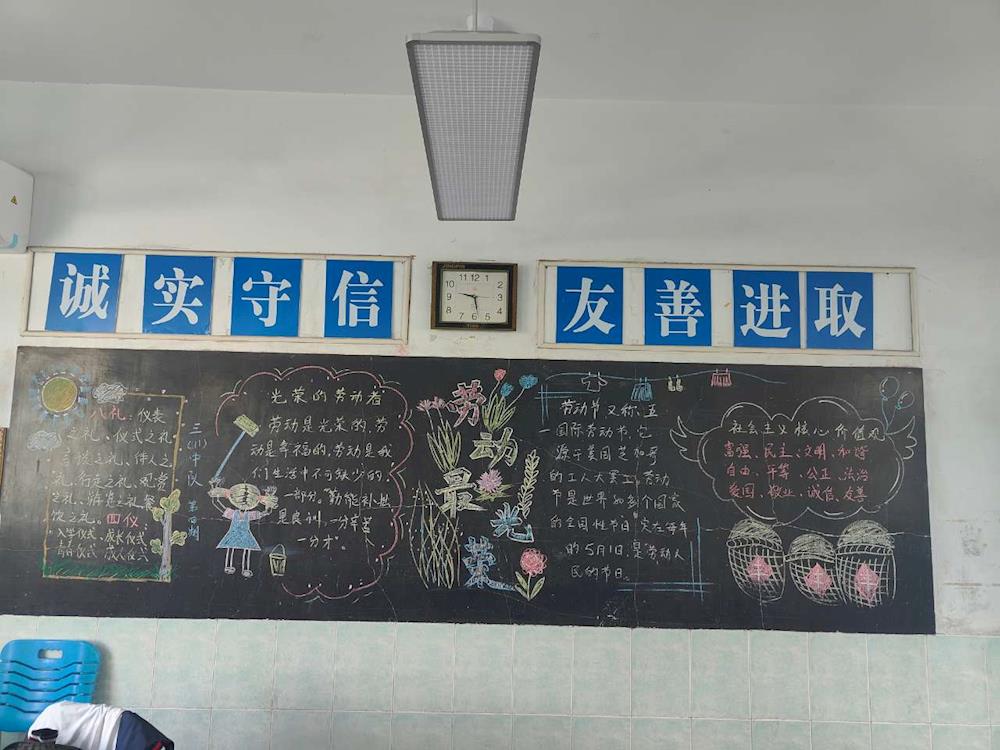 诚实守信
友善进取
八礼:仪表
之礼、仪式之礼
言谈之礼、待人之
礼、行走之礼、观赏
之礼、游览之礼、餐
饮之礼。四仪:
入学仪式、成长仪式
青春仪式、成人仪式
三(11)中队 第四期
光荣的劳动者
劳动是光荣的,劳
动是幸福的,劳动是我
们生活中不可缺少的
一部分。勤能补拙
是良训,一分辛苦
一分才。
劳动最光荣
劳动节又称五一
国际劳动节,它
源于美国芝加哥
的工人大罢工。劳动
节是世界80多个国家
的全国性节日,定在每年
的5月1日,是劳动人
民的节日。
社会主义核心价值观
富强、民主、文明、和谐
自由、平等、公正、法治
爱国、敬业、诚信、友善